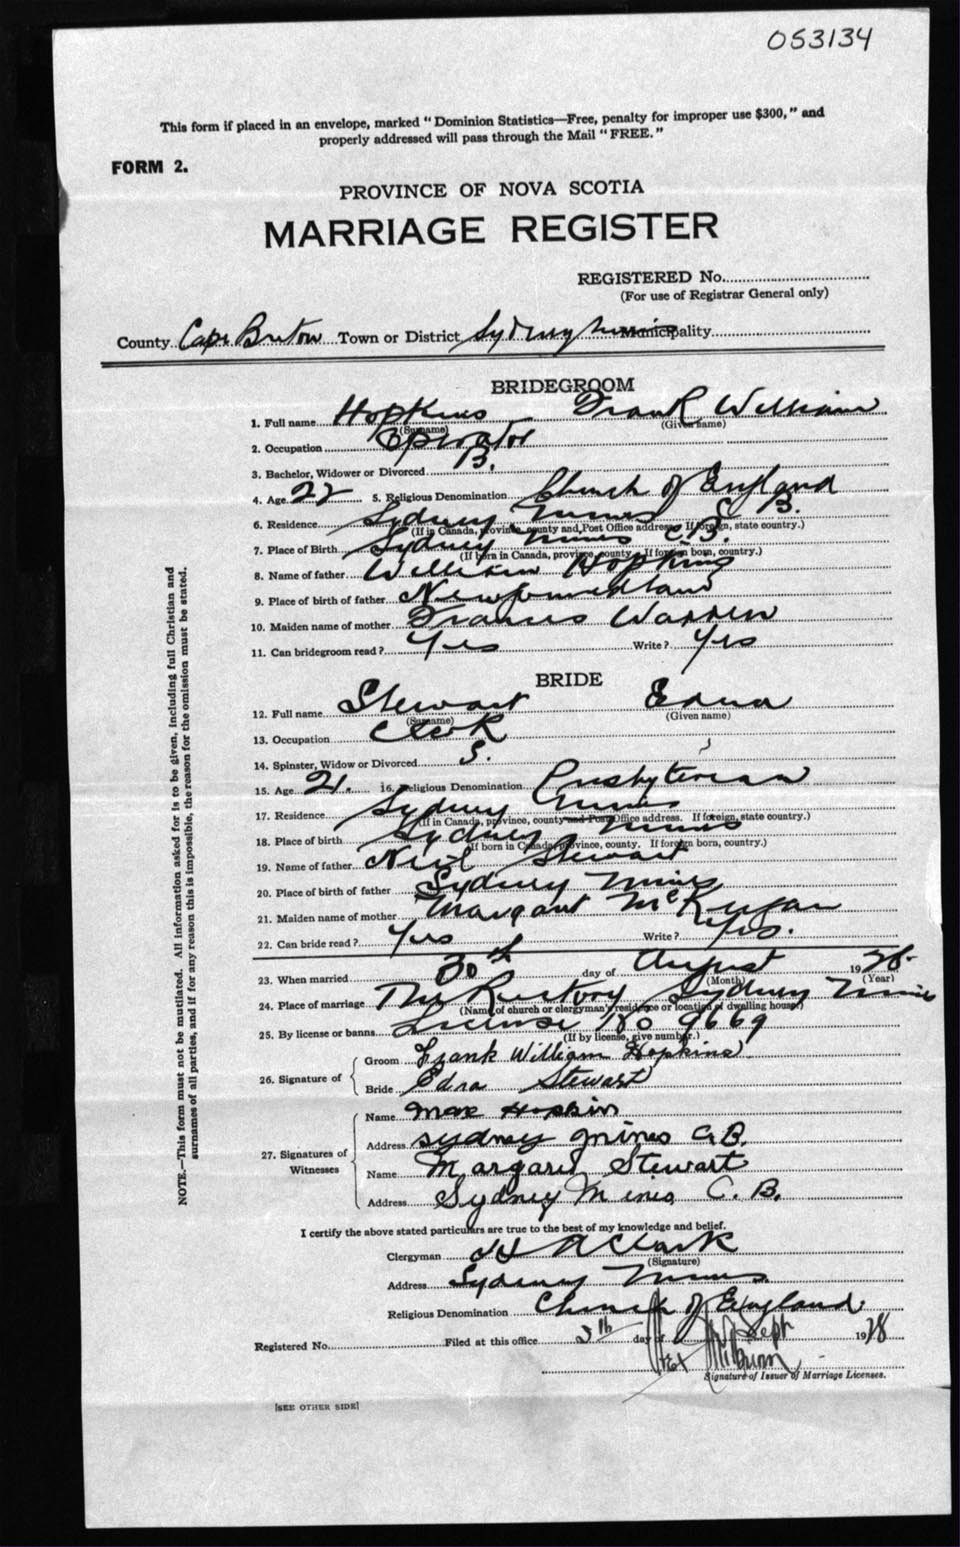 053134
This form if placed in an envelope, marked "Dominion Statistics—Free, penalty for improper use $300," and
properly addressed will pass through the Mail "FREE."
FORM 2.
PROVINCE OF NOVA SCOTIA
MARRIAGE REGISTER
REGISTERED No.
(For use of Registrar General only)
County Cape Breton Town or District Sydney Mines Municipality
BRIDEGROOM
1. Full name Hopkins Frank William
(Surname) (Given name)
2. Occupation Operator
3. Bachelor, Widower or Divorced B.
4. Age 22 5. Religious Denomination Church of England
6. Residence Sydney Mines C B.
(If in Canada, province, county and Post Office address. If foreign, state country.)
7. Place of Birth Sydney Mines C.B.
(If born in Canada, province, county. If foreign born, country.)
8. Name of father William Hopkins
9. Place of birth of father Newfoundland
10. Maiden name of mother Frances Warren
11. Can bridegroom read? Yes Write? Yes
BRIDE
12. Full name Stewart Edna
(Surname) (Given name)
13. Occupation Clerk
14. Spinster, Widow or Divorced S.
15. Age 21. 16. Religious Denomination Presbyterian
17. Residence Sydney Mines
(If in Canada, province, county and Post Office address. If foreign, state country.)
18. Place of birth Sydney Mines
(If born in Canada, province, county. If foreign born, country.)
19. Name of father Neil Stewart
20. Place of birth of father Sydney Mines
21. Maiden name of mother Margaret
22. Can bride read? Yes Write? Yes.
23. When married 30th day of August 1928.
(Month) (Year)
24. Place of marriage The Rectory Sydney Mines
(Name of church or clergyman's residence or location of dwelling house)
25. By license or banns License 180 9669
(If by license, give number.)
26. Signature of
Groom Frank William Hopkins
Bride Edna Stewart
27. Signatures of Witnesses
Name Hopkins
Address Sydney Mines C.B.
Name Margaret Stewart
Address Sydney Mines C. B.
I certify the above stated particulars are true to the best of my knowledge and belief.
Clergyman A Clark
(Signature)
Address Sydney Mines.
Religious Denomination Church of England.
Registered No. Filed at this office day of Sept 1928
Signature of Issuer of Marriage Licenses.
[SEE OTHER SIDE]
NOTE.—This form must not be mutilated. All information asked for is to be given, including full Christian and
surnames of all parties, and if for any reason this is impossible, the reason for the omission must be stated.